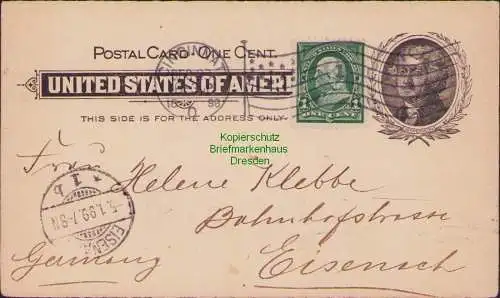 POSTAL CARD - ONE CENT.
CINCINNATI
UNITED STATES OF AMERI
98
O
ONE CENT
THIS SIDE IS FOR THE ADDRESS ONLY.
Kopierschutz
Briefmarkenhaus
Dresden
Frau
Helene Klebbe
Bahnhofstrasse
Eisenach
Germany
EISENA
5.1.99.7-8N
* 1b